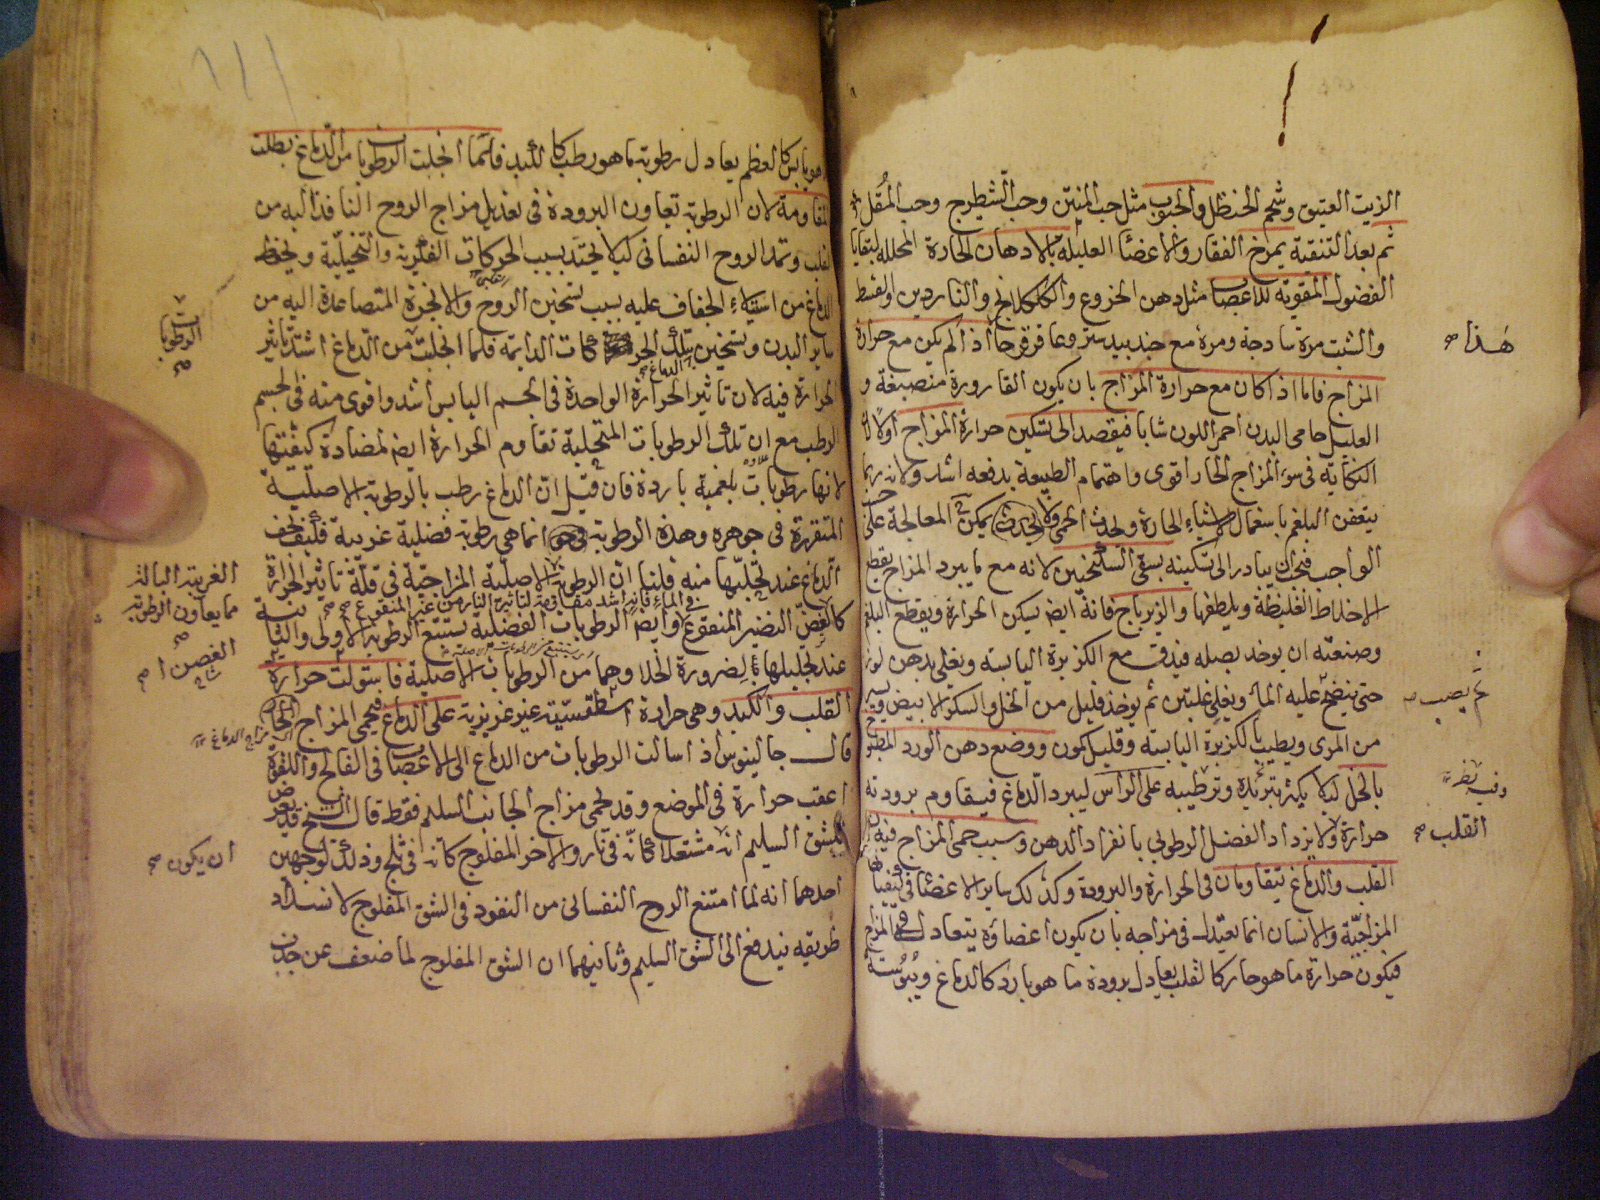 الزيت العتيق وشحم الحنظل والحبوب مثل حب المنتن وحب الشيطرج وحب المقل
ثم بعد التنقية يمرخ الفقار والاعضا العليلة بالادهان الحارة المحللة لبقايا
الفضول المقوية للاعصاب مثل دهن الخروع والكلكلانج والناردين والقسط
والشبت مرة ساذجة ومرة مع جندبيدستر وعاقرقرحا اذا لم يكن مع حرارة
هذا
المزاج فاما اذا كان مع حرارة المزاج بان يكون القارورة منصبغة و
العليل حامى البدن احمر اللون شابا فيقصد الى تسكين حرارة المزاج اولا لان
النكاية فى سوء المزاج الحار اقوى واهتمام الطبيعة بدفعه اشد ولانه ربما
يتعفن البلغم باستعمال الاشياء الحارة وحدث الحمى ولا يمكن المعالجة على
الواجب فيجب ان يبادر الى تسكينه بسقى السكنجبين لانه مع ما يبرد المزاج يقطع
الاخلاط الغليظة ويلطفها والزيرباج فانه ايضا يسكن الحرارة ويقطع البلغم
وصنعته ان يوخذ بصله فيدق مع الكزبرة اليابسة ويغلى بدهن لوز
حتى ينضج عليه الماء ويغلى غليتين ثم يوخذ قليل من الخل والسكر الابيض
ثم يصب
من المرى ويطيب بالكزبرة اليابسة وقليل كمون ووضع دهن الورد المطبوخ
بالخل ليلا تبريده وترطيبه على الراس ليبرد الدماغ فيقاوم برودته
حرارة ولا يزداد الفضل الرطوبى بانفراد الدهن وسبب حمى المزاج فيه ان
القلب
القلب والدماغ يتقاومان فى الحرارة والبرودة وكذلك ساير الاعضا فى كيفياتها
المزاجية والانسان انما يعتدل فى مزاجه بان يكون اعضاؤه يتعادل فى المزاج
فيكون حرارة ما هو حار كالقلب يعادل برودة ما هو بارد كالدماغ ويبوسة
١١١
ما هو يابس كالعظم يعادل رطوبة ما هو رطب كالكبد فلما انحلت الرطوبات من الدماغ بطلت
المقاومة لان الرطوبة تعاون البرودة فى تعديل مزاج الروح النافذ اليه من
القلب وتمد الروح النفسانى كيلا يحتد بسبب الحركات الفكرية والتخيلية ويحفظ
الدماغ من استيلاء الجفاف عليه بسبب تسخين الروح والابخرة المتصاعدة اليه من
ساير البدن وتسخين تلك الحركات الدايمة فلما انحلت من الدماغ اشتد تاثير
الرطوبات
الحرارة فيه لان تاثير الحرارة الواحدة فى الجسم اليابس اشد واقوى منه فى الجسم
الرطب مع ان تلك الرطوبات المتحللة تقاوم الحرارة ايضا لمضادة كيفيتها
لانها رطوبات بلغمية باردة فان قيل ان الدماغ رطب بالرطوبة الاصلية
المتقررة فى جوهره وهذه الرطوبة انما هى رطوبة فضلية غريبة فكيف يجف
الدماغ عند تحللها منه قلنا ان الرطوبة الاصلية المزاجية فى قلة تاثير الحرارة
الغريبة البالة
مما يعاون الرطوبة
كالغض النضير المنقوع وايضا الرطوبات الفضلية تستتبع الرطوبة الاولى والثانية
الغصن
عند تحليلها لضرورة الخلا وجها من الرطوبات الاصلية فاستولت حرارة
القلب والكبد وهى حرارة اسطقسية غير غريزية على الدماغ فيحمى المزاج
مزاج الدماغ
قال جالينوس اذا سالت الرطوبات من الدماغ الى الاعصاب فى الفالج واللقوة
اعقب حرارة فى الموضع وقد يحمى مزاج الجانب السليم فقط قال الشيخ قد يعرض
للشق السليم انه مشتعلا كانه فى نار والاخر المفلوج كانه فى ثلج وذلك لوجهين
ان يكون
احدهما انه لما امتنع الروح النفسانى من النفوذ فى الشق المفلوج لانسداد
طريقه يندفع الى الشق السليم وثانيهما ان الشق المفلوج لما ضعف عن جذب